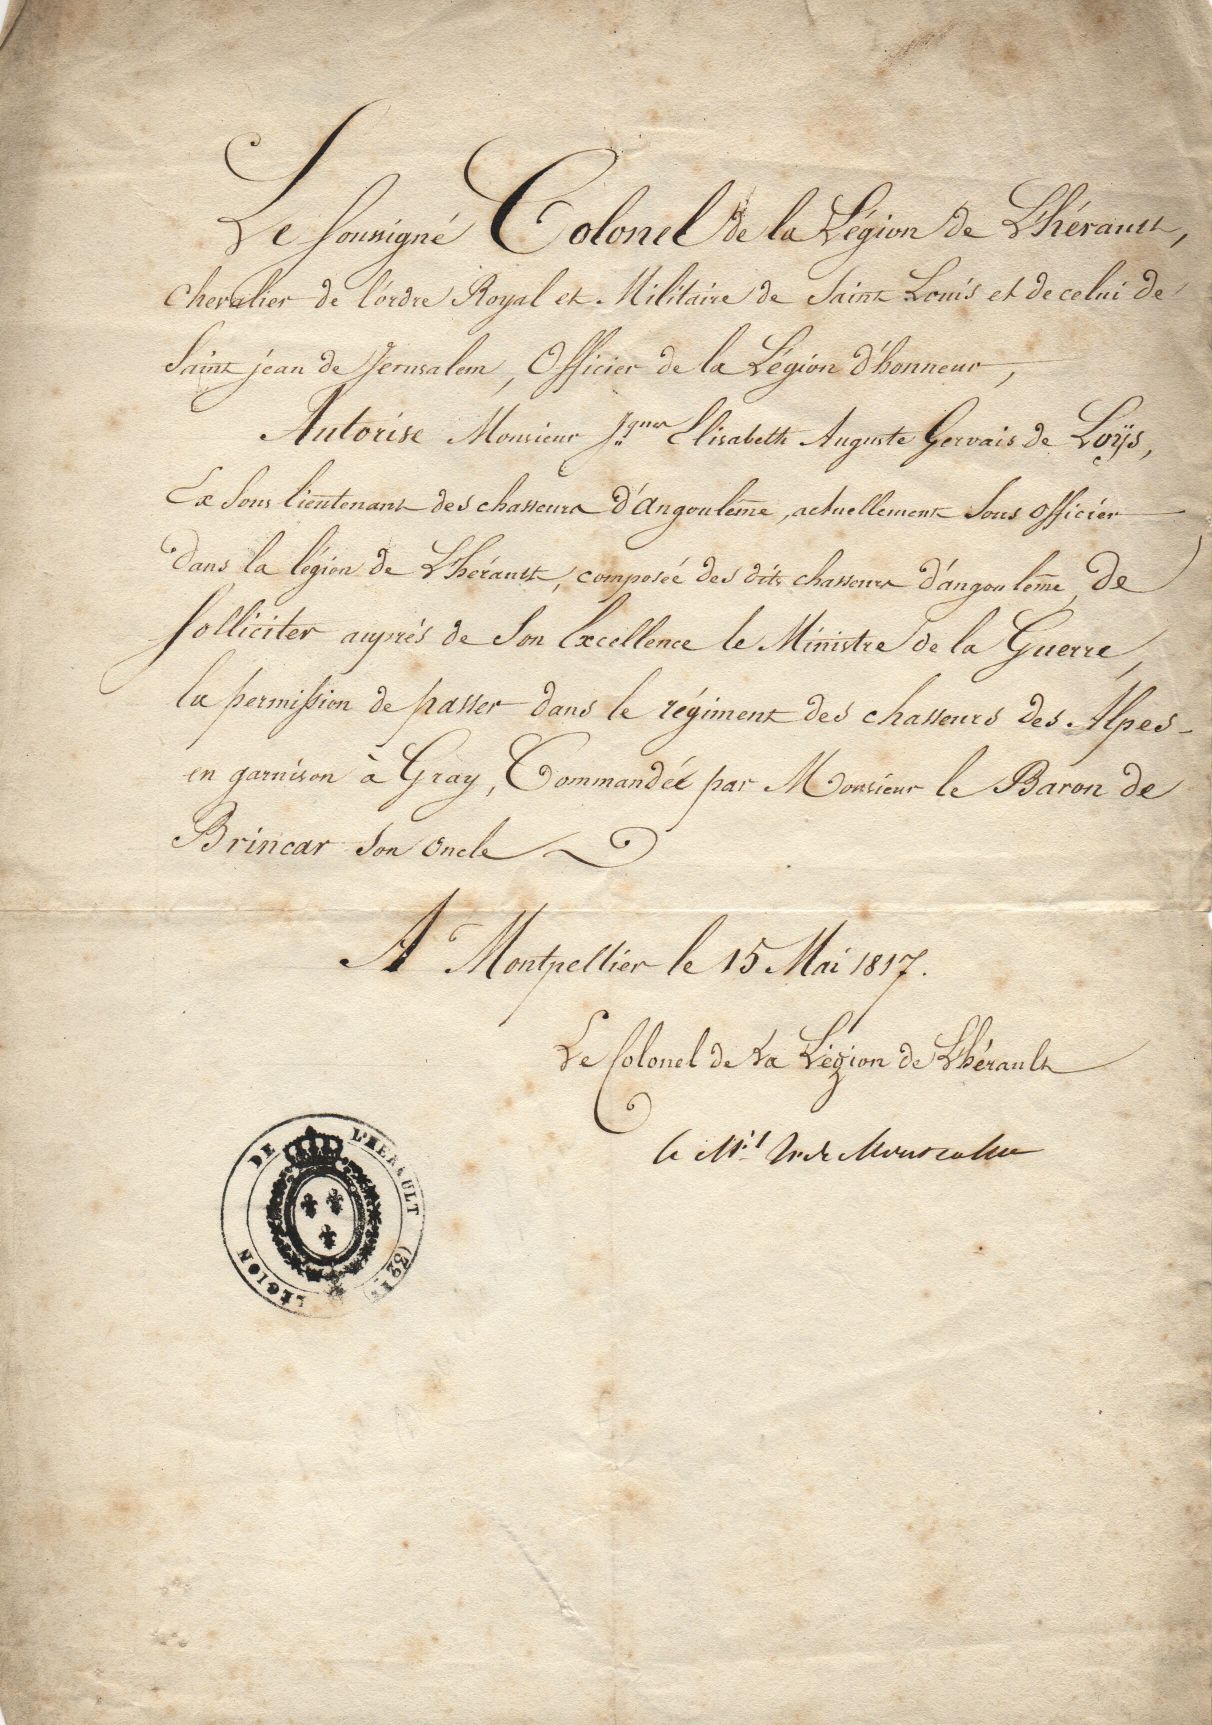 Le Soussigné Colonel de la Légion de L'hérault,
chevalier de l'ordre Royal et Militaire de Saint Louis et de celui de
Saint jean de Jerusalem, Officier de la Légion d'honneur,
Autorise Monsieur Jques Elisabeth Auguste Gervais de Loÿs,
Ex Sous lieutenant des chasseurs d'angoulême, actuellement Sous officier
dans la légion de L'hérault, composée des dits chasseurs d'angoulême, de
Solliciter auprès de Son Excellence le Ministre de la Guerre,
la permission de passer dans le régiment des chasseurs des Alpes
en garnison à Gray, Commandée par Monsieur le Baron de
Brincar Son oncle
A Montpellier le 15 Mai 1817.
Le Colonel de La Légion de L'hérault
le Mis
LÉGION DE L'HÉRAULT